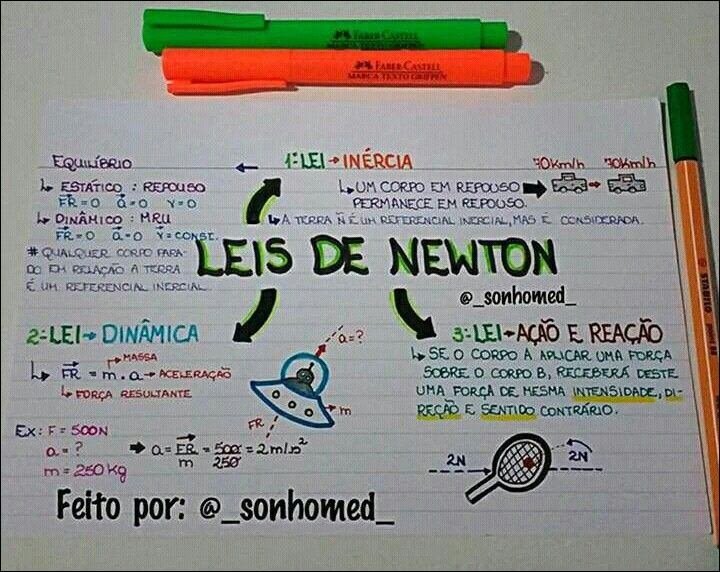 FABER-CASTELL
MARCA TEXTO GRIFPEN
FABER-CASTELL
MARCA TEXTO GRIFPEN
STABILO
EQUILÍBRIO ← 1ª LEI → INÉRCIA
↳ ESTÁTICO : REPOUSO
FR=0 a=0 v=0
↳ DINÂMICO : MRU
FR=0 a=0 v=CONST.
# QUALQUER CORPO PARA-
DO EM RELAÇÃO À TERRA
É UM REFERENCIAL INERCIAL.
↳ UM CORPO EM REPOUSO
PERMANECE EM REPOUSO.
70Km/h 70Km/h
↳ A TERRA Ñ É UM REFERENCIAL INERCIAL, MAS É CONSIDERADA.
LEIS DE NEWTON
@_sonhomed_
2ª LEI → DINÂMICA
MASSA
↳ FR = m . a → ACELERAÇÃO
↳ FORÇA RESULTANTE
a=?
m
FR
EX: F = 500N
a = ?
m = 250 kg
➡ a = FR/m = 500/250 = 2m/s²
3ª LEI → AÇÃO E REAÇÃO
↳ SE O CORPO A APLICAR UMA FORÇA
SOBRE O CORPO B, RECEBERÁ DESTE
UMA FORÇA DE MESMA INTENSIDADE, DI-
REÇÃO E SENTIDO CONTRÁRIO.
2N 2N
Feito por: @_sonhomed_